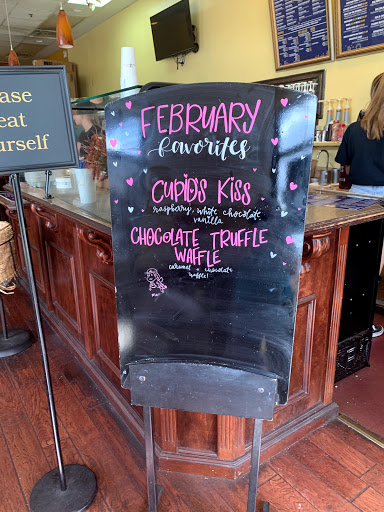 ase
eat
urself
FEBRUARY
favorites
CUPID'S KISS
raspberry, white chocolate
vanilla
CHOCOLATE TRUFFLE
WAFFLE
caramel + chocolate
waffle!